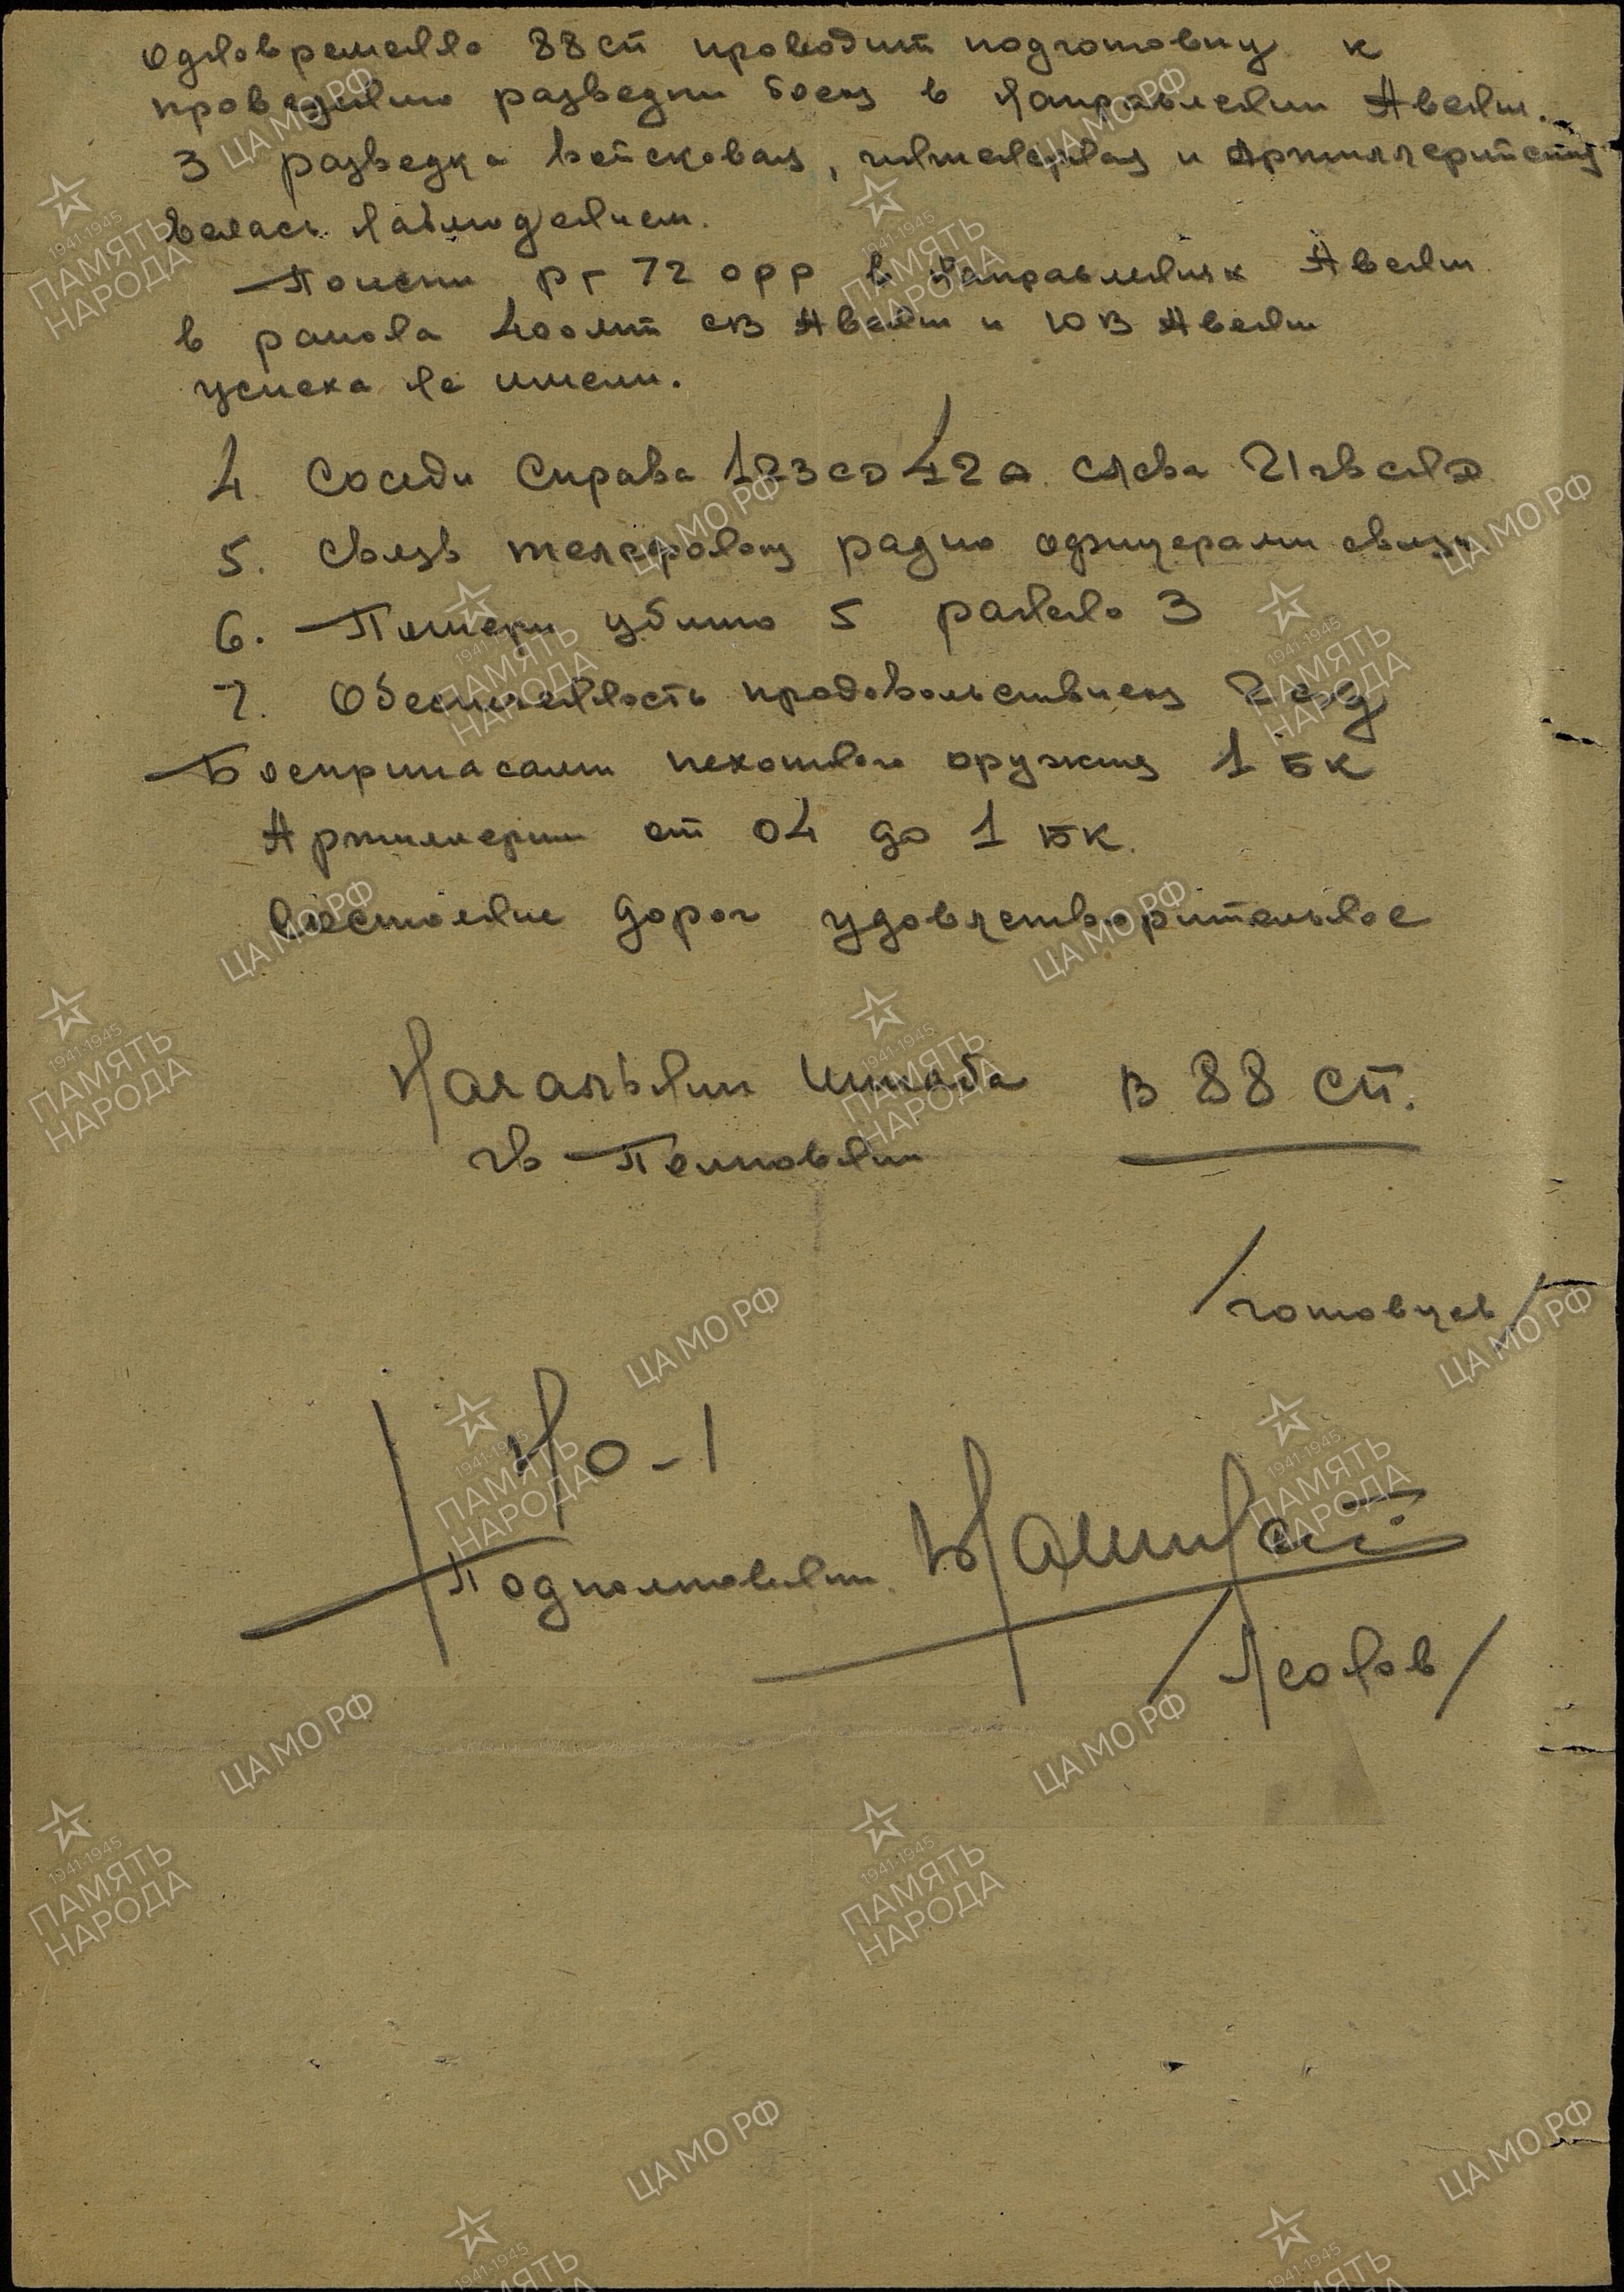 Одновременно 88 сп проводит подготовку к
проведению разведки боем в направлении Авены.
3 разведка войсковая, инженерная и Артиллерийская
велась наблюдением.
Поиски рг 72 орр в направлениях Авены
в районе 400 мт СВ Авены и ЮВ Авены
успеха не имели.
4. Соседи Справа 123 сд 42 А. слева 21 гв сд
5. Связь телефоном радио офицерами связи
6. Потери убито 5 ранено 3
7. Обеспеченность продовольствием 2 сд
Боеприпасами пехотного оружия 1 БК
Артиллерии от 04 до 1 БК.
состояние дорог удовлетворительное
Начальник штаба В 88 СП.
гв Полковник
/Готовцев/
НО-1
Подполковник
/Леонов/
ЦА МО РФ
1941-1945
ПАМЯТЬ
НАРОДА